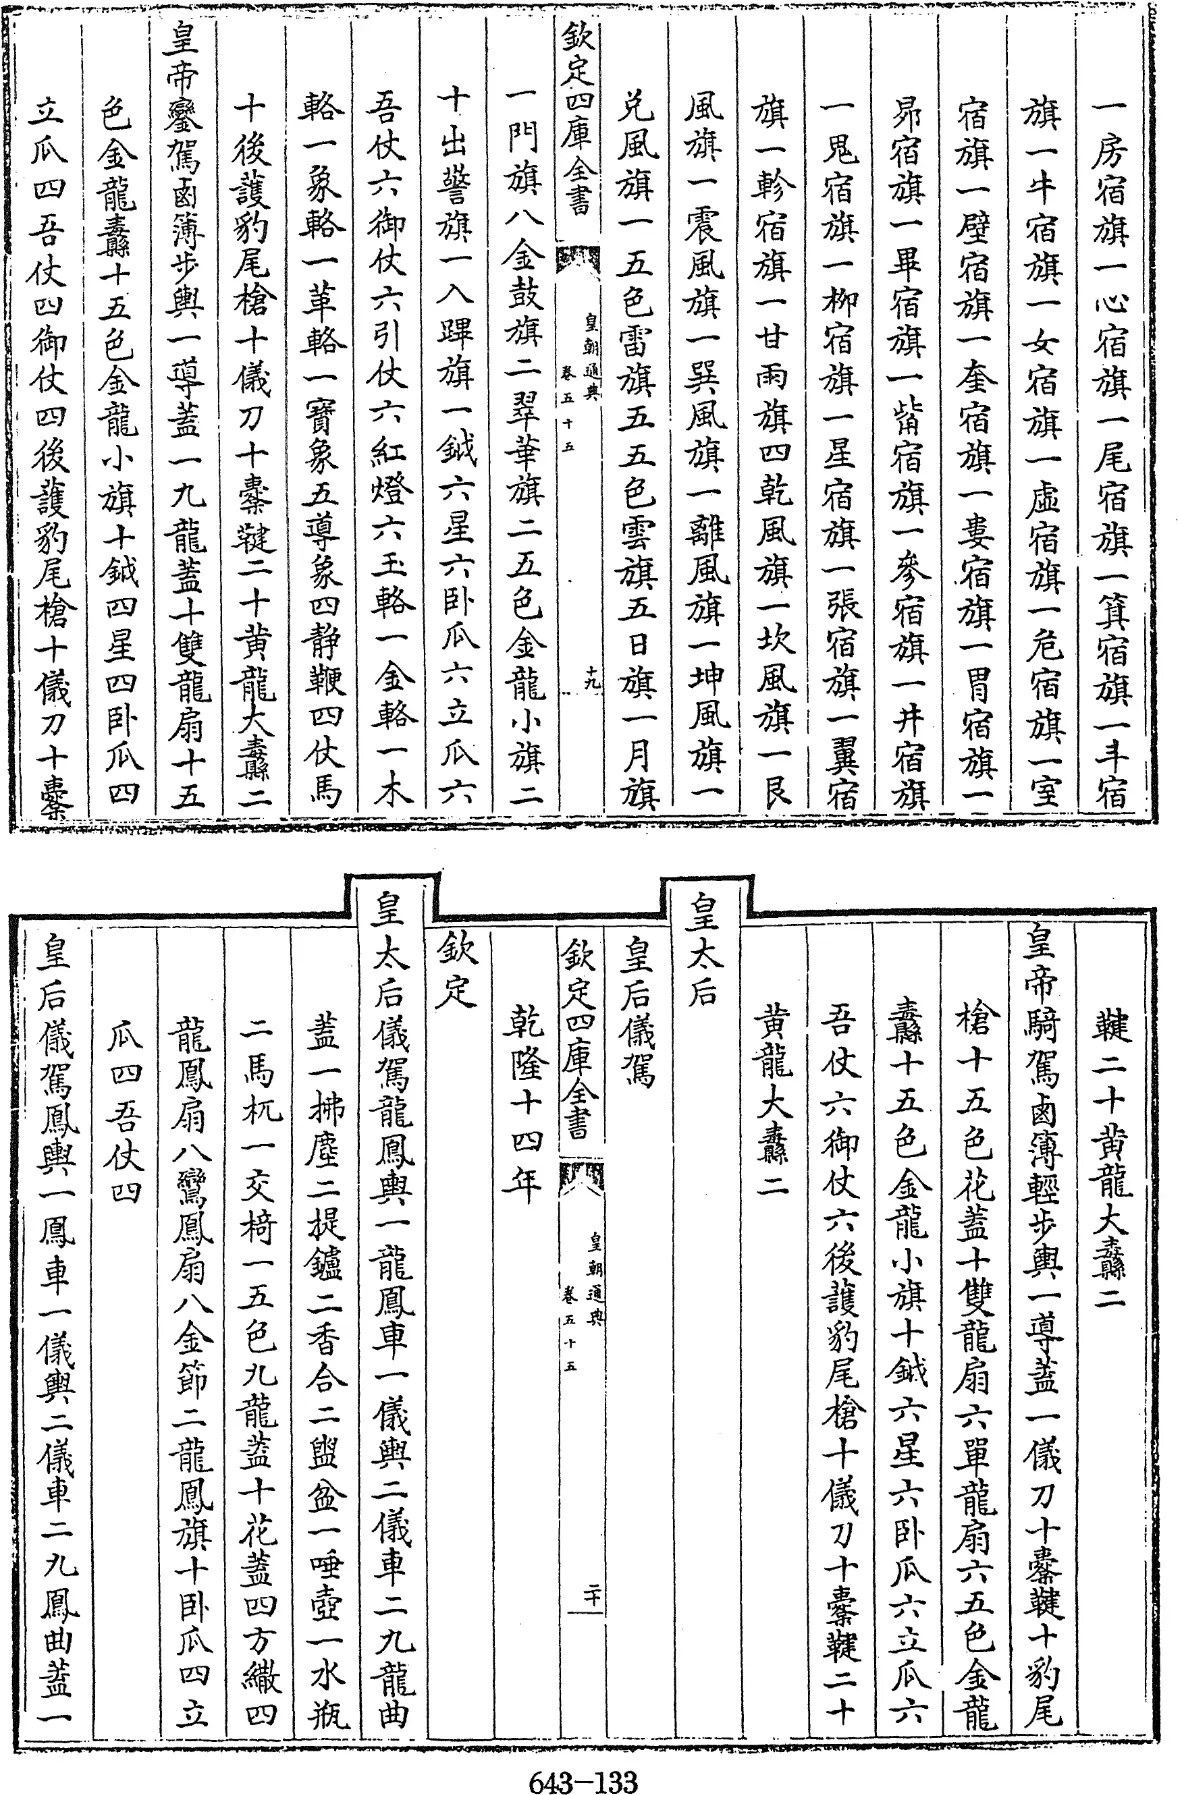 一房宿旗一心宿旗一尾宿旗一箕宿旗一斗宿
旗一牛宿旗一女宿旗一虛宿旗一危宿旗一室
宿旗一壁宿旗一奎宿旗一婁宿旗一胃宿旗一
昴宿旗一畢宿旗一觜宿旗一參宿旗一井宿旗
一鬼宿旗一柳宿旗一星宿旗一張宿旗一翼宿
旗一軫宿旗一甘雨旗四乾風旗一坎風旗一艮
風旗一震風旗一巽風旗一離風旗一坤風旗一
兌風旗一五色雷旗五五色雲旗五日旗一月旗
欽定四庫全書
皇朝通典
卷五十五
十九
一門旗八金鼓旗二翠華旗二五色金龍小旗二
十出警旗一入蹕旗一鉞六星六卧瓜六立瓜六
吾仗六御仗六引仗六紅燈六玉輅一金輅一木
輅一象輅一革輅一寶象五導象四靜鞭四仗馬
十後護豹尾槍十儀刀十櫜鞬二十黃龍大纛二
皇帝鑾駕鹵簿步輿一導蓋一九龍蓋十雙龍扇十五
色金龍纛十五色金龍小旗十鉞四星四卧瓜四
立瓜四吾仗四御仗四後護豹尾槍十儀刀十櫜
鞬二十黃龍大纛二
皇帝騎駕鹵簿輕步輿一導蓋一儀刀十櫜鞬十豹尾
槍十五色花蓋十雙龍扇六單龍扇六五色金龍
纛十五色金龍小旗十鉞六星六卧瓜六立瓜六
吾仗六御仗六後護豹尾槍十儀刀十櫜鞬二十
黃龍大纛二
皇太后
皇后儀駕
欽定四庫全書
皇朝通典
卷五十五
二十
乾隆十四年
欽定
皇太后儀駕龍鳳輿一龍鳳車一儀輿二儀車二九龍曲
蓋一拂塵二提鑪二香合二盥盆一唾壺一水瓶
二馬杌一交椅一五色九龍蓋十花蓋四方繖四
龍鳳扇八鸞鳳扇八金節二龍鳳旗十卧瓜四立
瓜四吾仗四
皇后儀駕鳳輿一鳳車一儀輿二儀車二九鳳曲蓋一
643-133